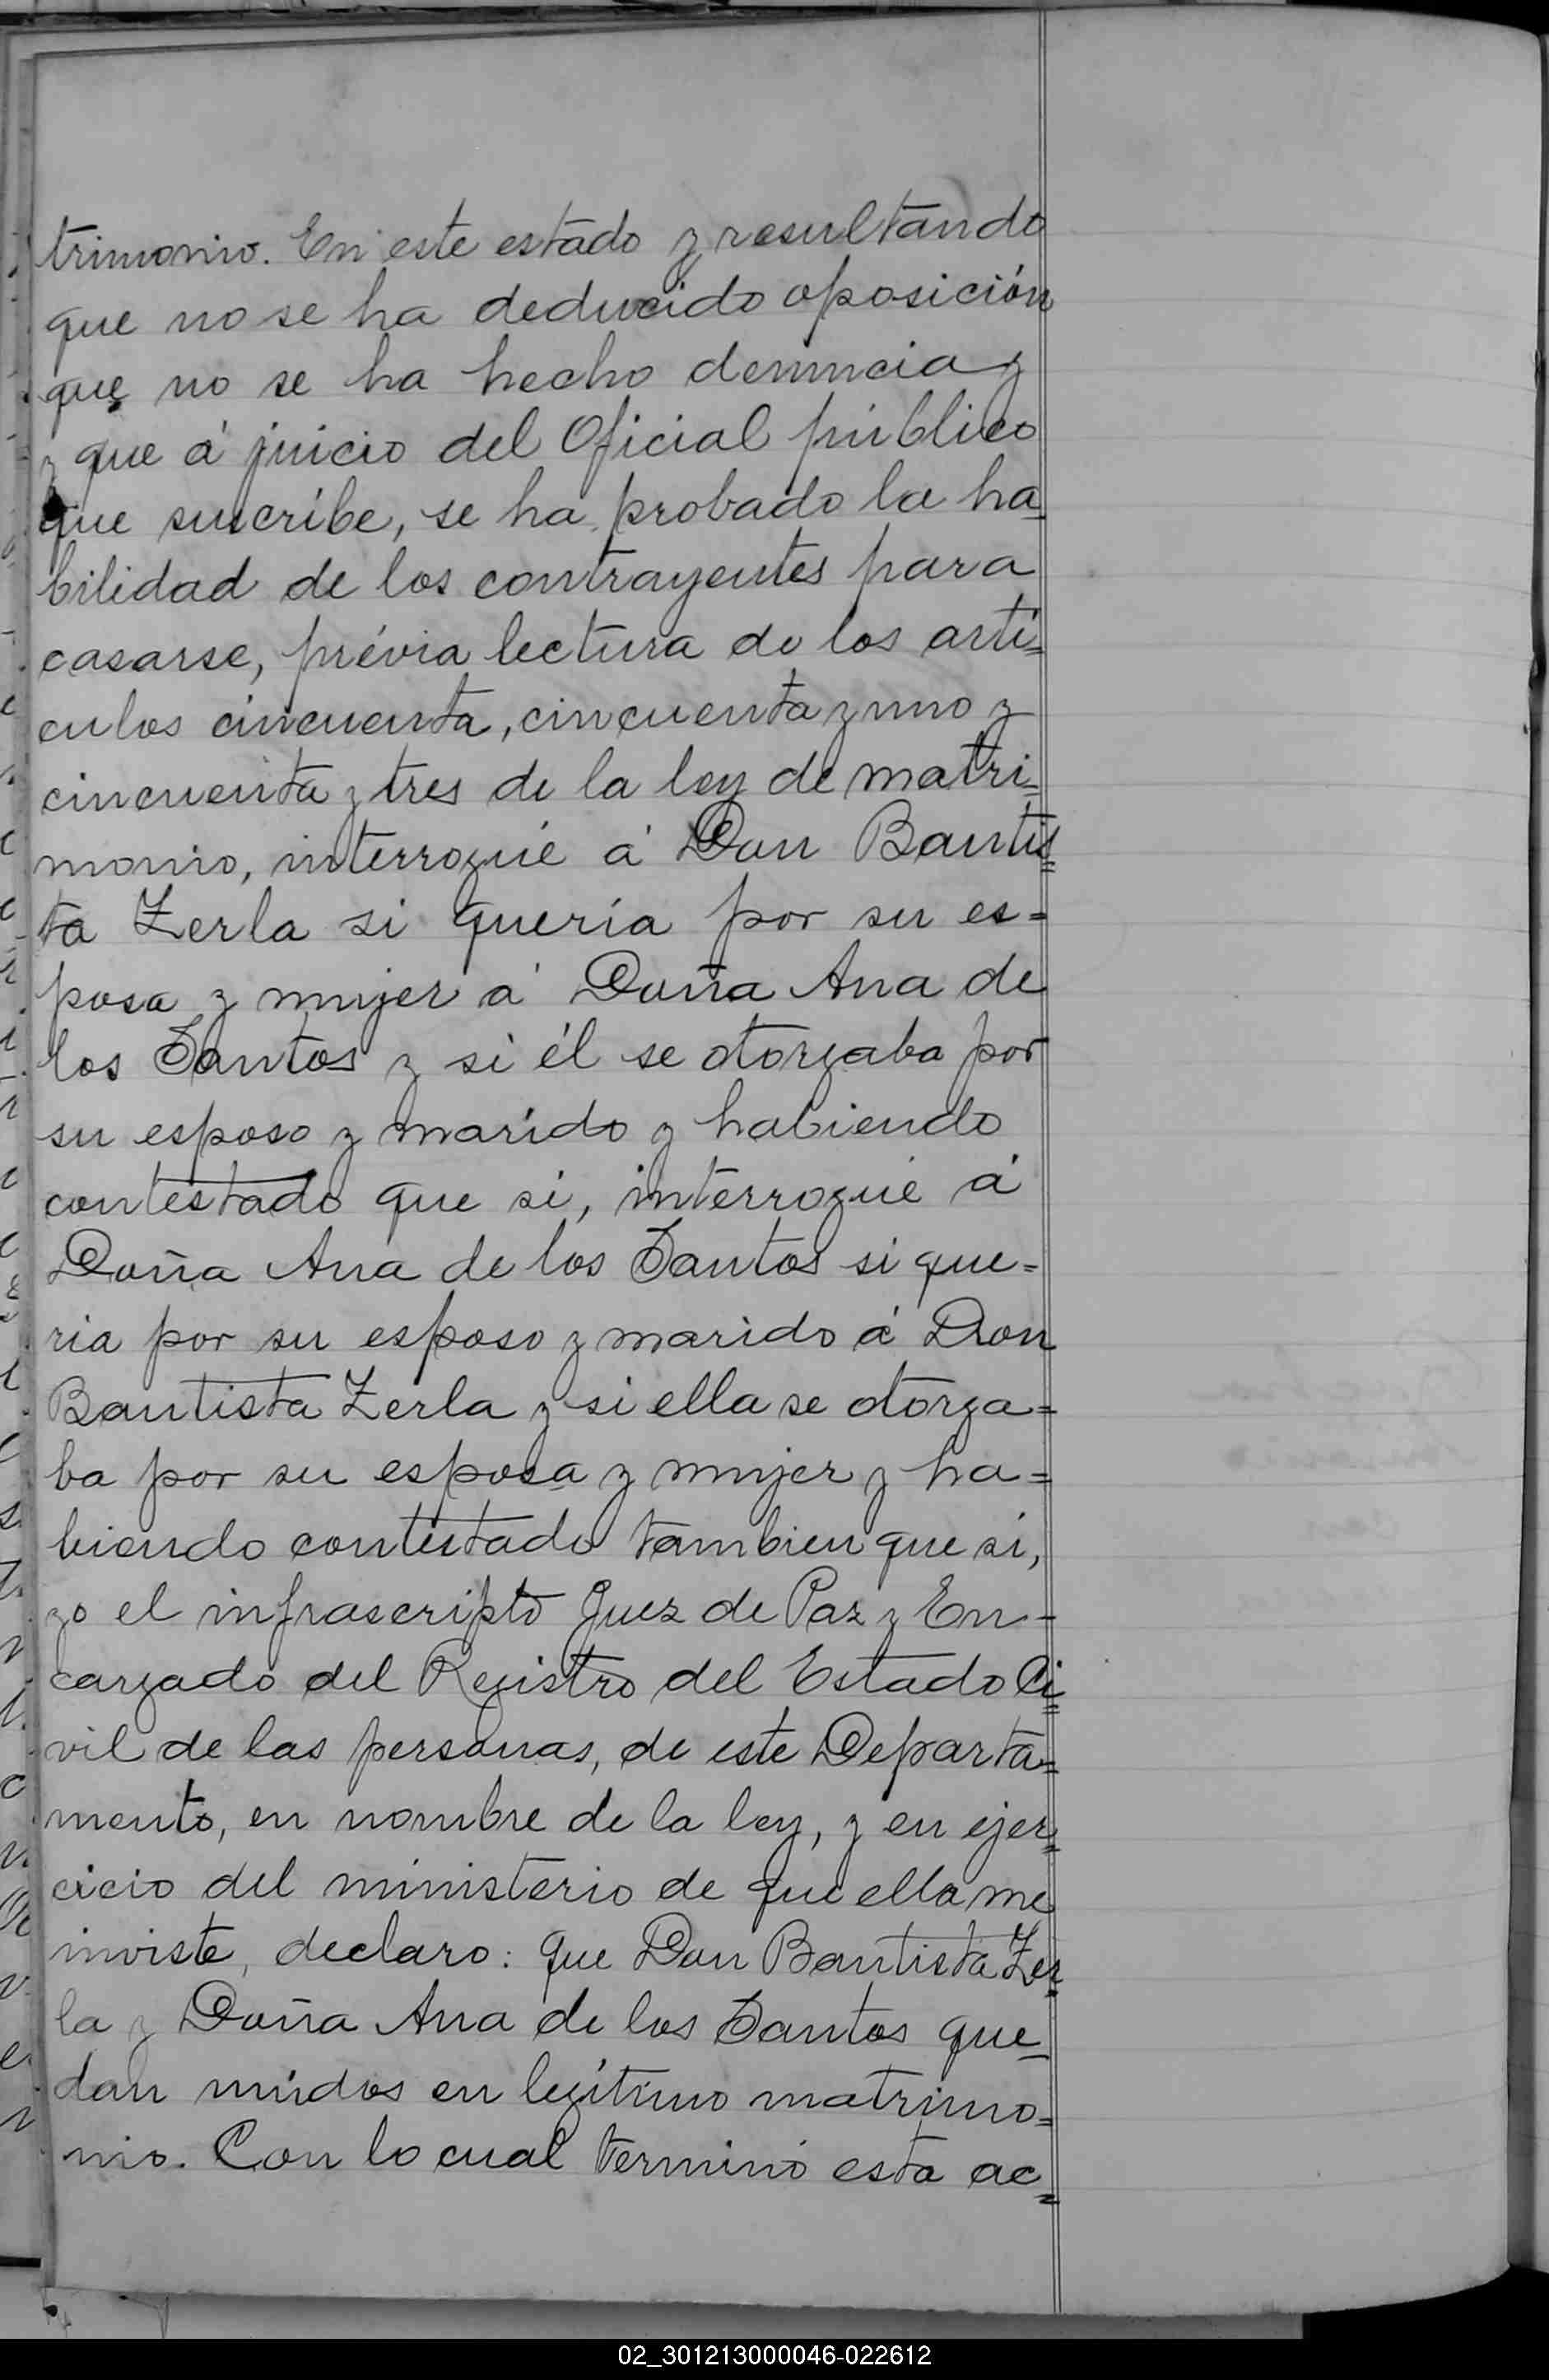 trimonio. En este estado y resultando
que no se ha deducido oposición
que no se ha hecho denuncia y
y que á juicio del Oficial público
que suscribe, se ha probado la ha_
bilidad de los contrayentes para
casarse, prévia lectura de los artí=
culos cincuenta, cincuenta y uno y
cincuenta y tres de la ley de matri=
monio, interrogué á Don Bautis=
ta Zerla si quería por su es=
posa y mujer á Doña Ana de
los Santos y si él se otorgaba por
su esposo y marido y habiendo
contestado que si, interrogué á
Doña Ana de los Santos si que=
ria por su esposo y marido á Don
Bautista Zerla y si ella se otorga=
ba por su esposa y mujer y ha=
biendo contestado tambien que si,
yo el infrascripto Juez de Paz y En-
cargado del Registro del Estado Ci=
vil de las personas, de este Departa=
mento, en nombre de la ley, y en ejer=
cicio del ministerio de que ella me
inviste, declaro: que Don Bautista Zer=
la y Doña Ana de los Santos que_
dan unidos en legítimo matrimo=
nio. Con lo cual terminó esta ac=
02_301213000046-022612